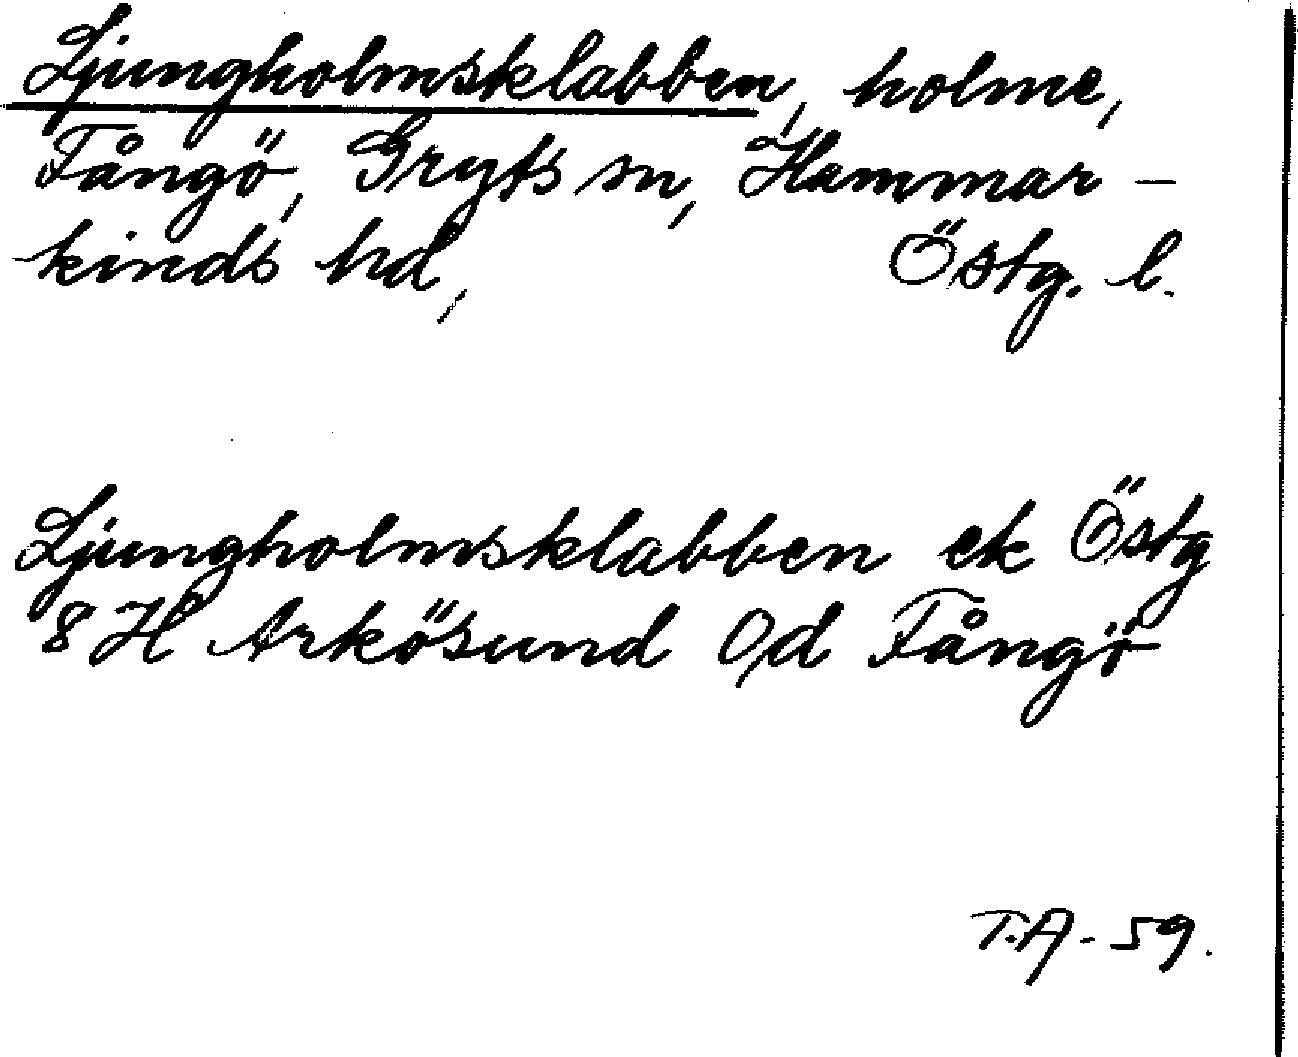 Ljungholmsklabben, holme,
Fångö, Gryts sn, Hammar-
kinds hd, Östg. l.
Ljungholmsklabben ek Östg
8 H Arkösund O/d Fångö
T.A - 59.